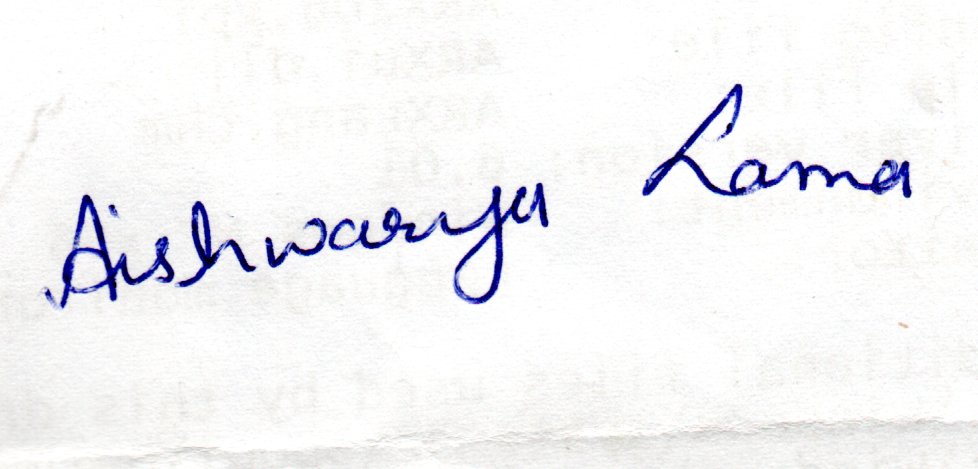 Aishwarya Lama